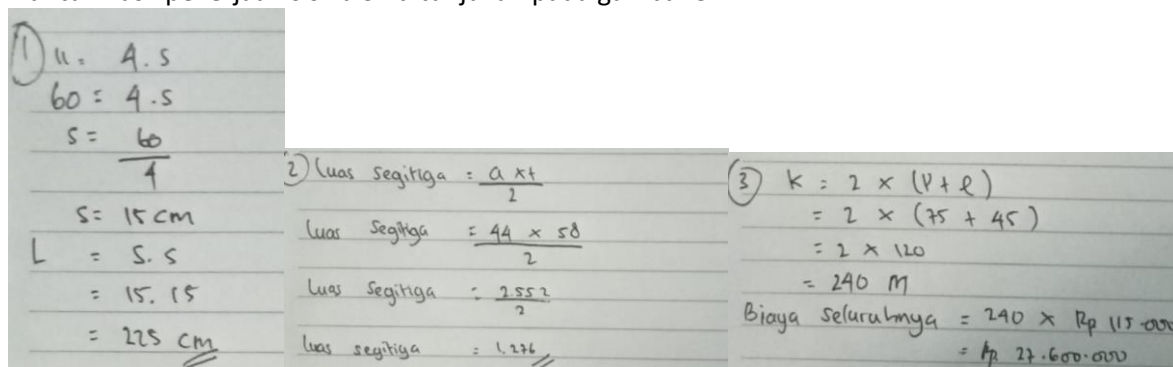 ① K = 4.s
60 = 4.s
s = 60
4
s = 15 cm
L = s.s
= 15.15
= 225 cm
2) Luas segitiga = a x t
2
Luas segitiga = 44 x 58
2
Luas segitiga = 2.552
2
Luas segitiga = 1.276
③ K = 2 x (P + l)
= 2 x (75 + 45)
= 2 x 120
= 240 M
Biaya seluruhnya = 240 x Rp 115.000
= Rp. 27.600.000